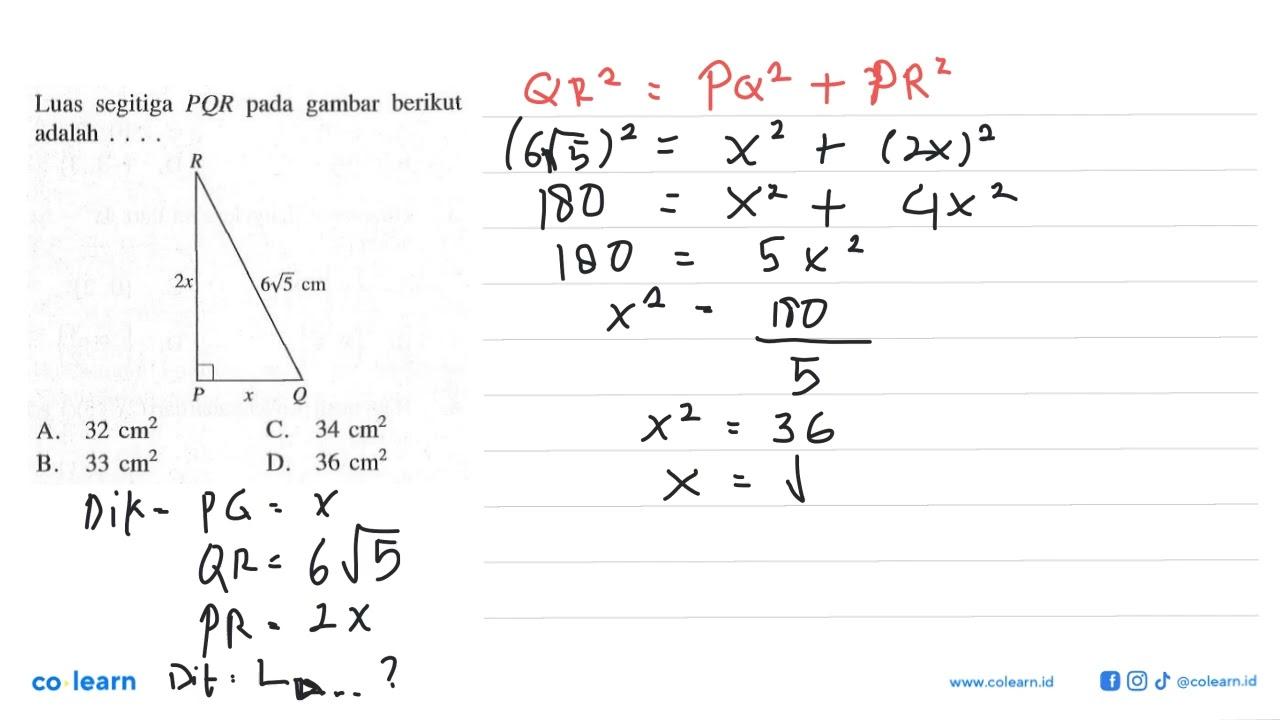 Luas segitiga PQR pada gambar berikut
adalah . . . .
R
2x
6√5 cm
P x Q
A. 32 cm² C. 34 cm²
B. 33 cm² D. 36 cm²
Dik - PG = x
QR = 6√5
PR = 2x
Dit : L ... ?
QR² = PQ² + PR²
(6√5)² = x² + (2x)²
180 = x² + 4x²
180 = 5x²
x² = 180
5
x² = 36
x = √
co·learn
www.colearn.id
@colearn.id